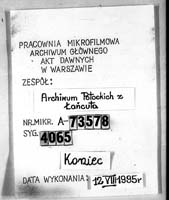 PRACOWNIA MIKROFILMOWA
ARCHIWUM GŁÓWNEGO
AKT DAWNYCH
W WARSZAWIE
ZESPÓŁ:
Archiwum Potockich z
Łańcuta
NR.MIKR. A-73578
SYG. 4065
Koniec
DATA WYKONANIA: 12.VII.1995r